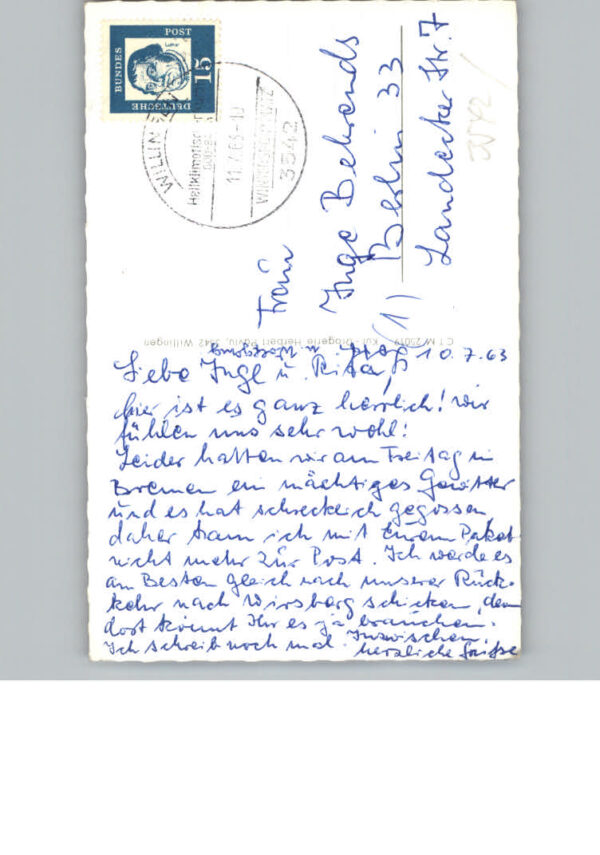 DEUTSCHE
BUNDES
POST
15
Luther
WILLINGEN
Heilklimatischer
11.7.63-10
3542
Frau
Inge Behrends
(1) Berlin 33
Landecker Str. 7
C T M 25019 Kur-Drogerie Herbert 3542 Willingen
10.7.63
Liebe Inge u. Rita,
hier ist es ganz herrlich! Wir
fühlen uns sehr wohl!
Leider hatten wir am Freitag in
Bremen ein mächtiges Gewitter
und es hat schrecklich gegossen
daher kam ich mit Eurem Paket
nicht mehr zur Post. Ich werde es
am Besten gleich nach unserer Rück-
kehr nach Wirsberg schicken, denn
dort könnt Ihr es ja brauchen.
Ich schreib noch mal. Inzwischen,
herzliche Grüße